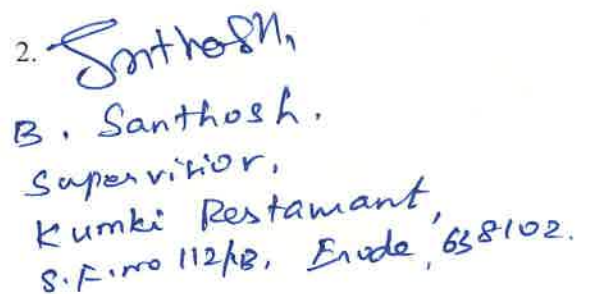 2. Santhosh
B. Santhosh.
Supervisior,
Kumki Restamant,
S.F.no 112/B, Erode, 638102.